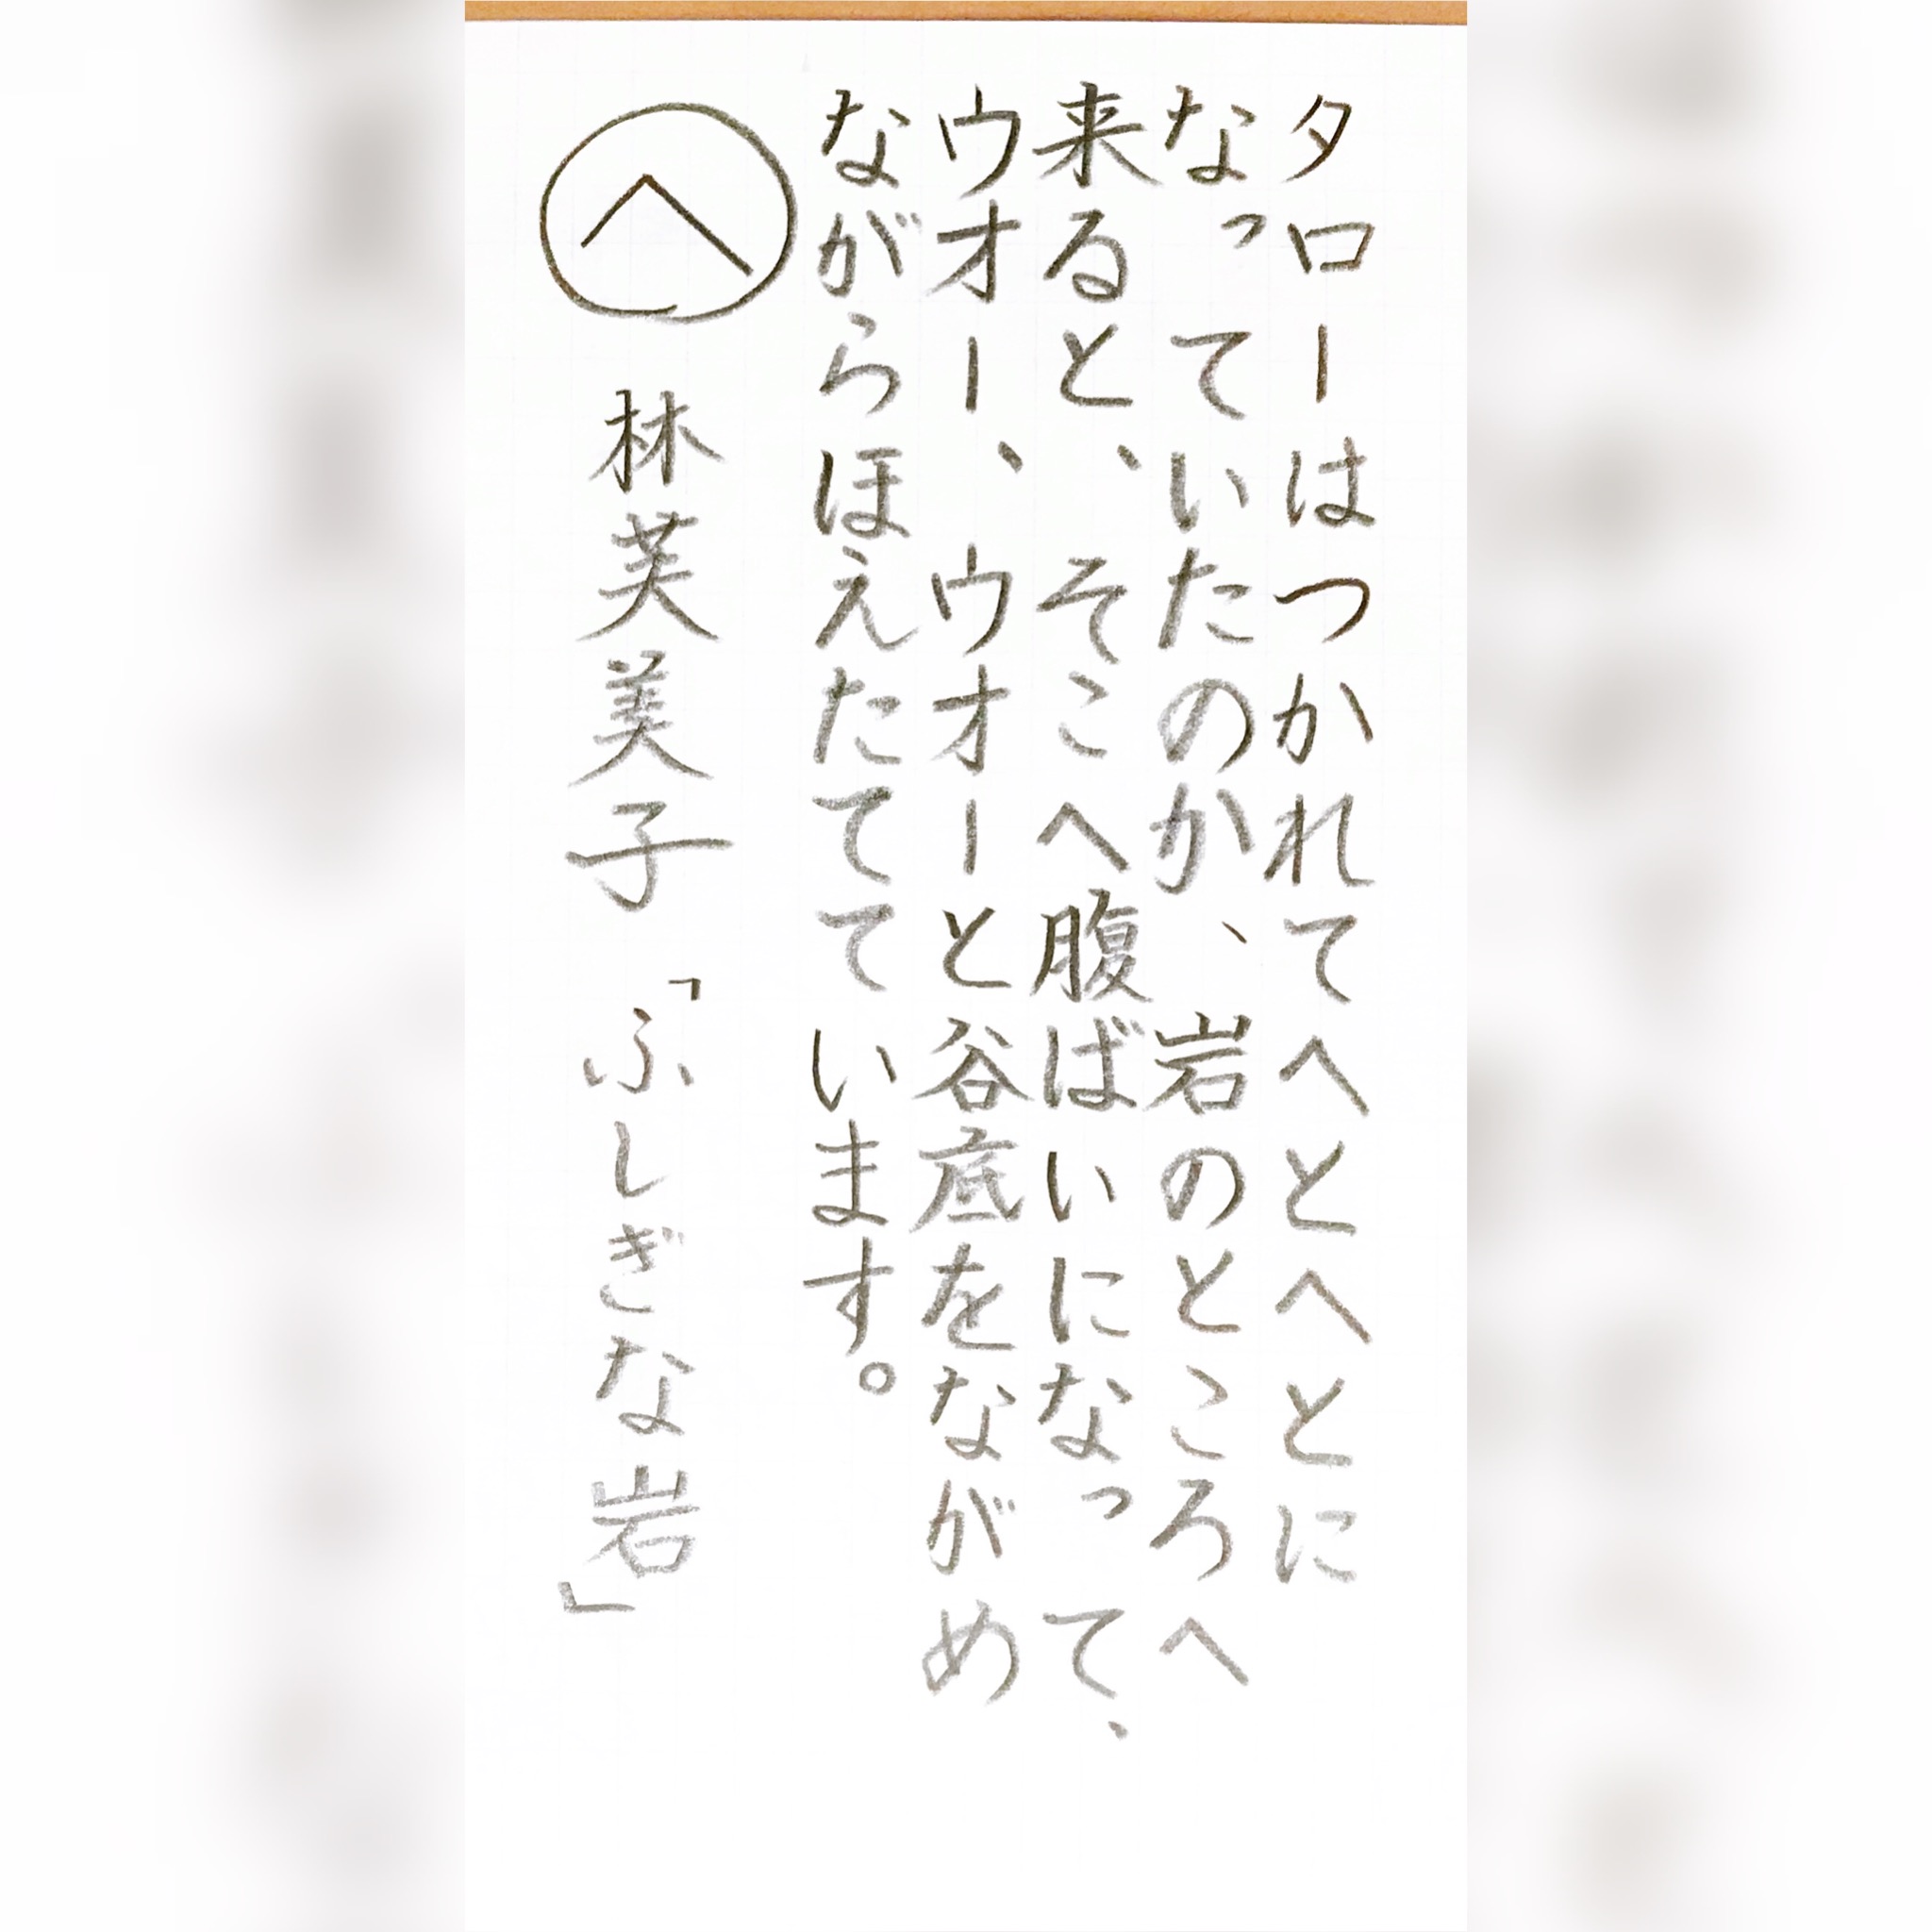 タローはつかれてへとへとに
なっていたのか、岩のところへ
来ると、そこへ腹ばいになって、
ウオー、ウオーと谷底をながめ
ながらほえたてています。
へ 林芙美子「ふしぎな岩」